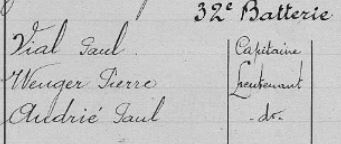 32e Batterie
Vial Paul Capitaine
Wenger Pierre Lieutenant
Andrié Paul -do-